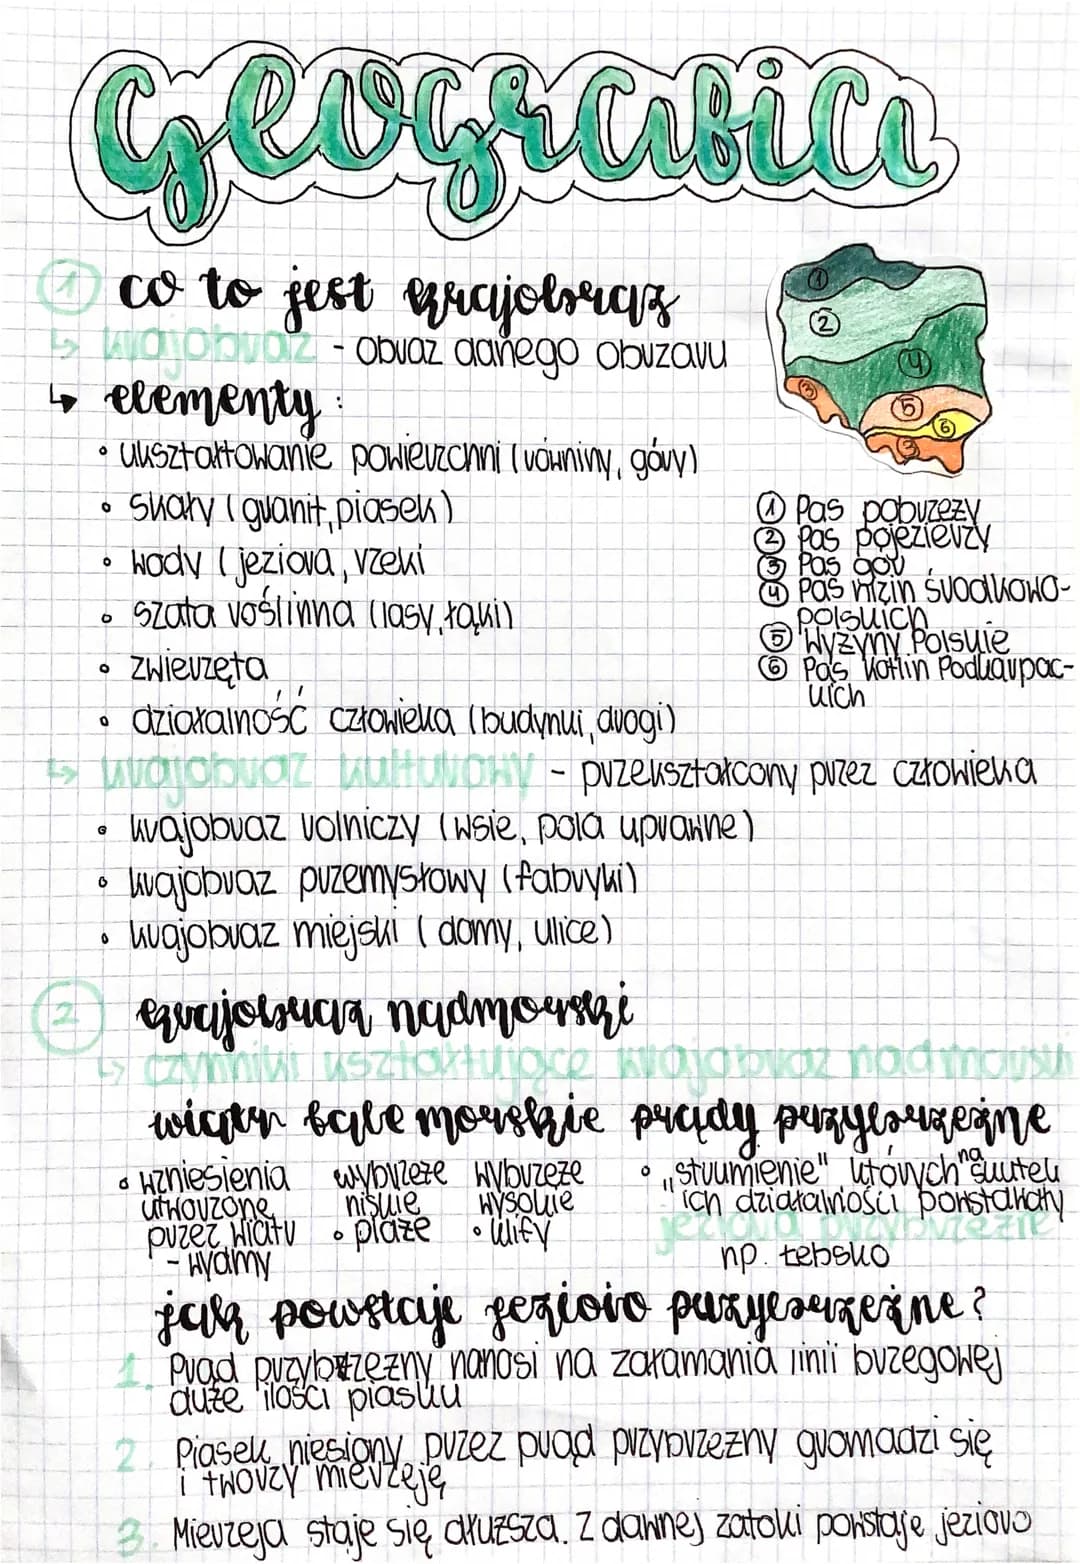 Geografia
1 co to jest krajobraz
↳ krajobraz - obraz danego obszaru
↳ elementy:
• ukształtowanie powierzchni (równiny, góry)
• skały (granit, piasek)
• wody (jeziora, rzeki
• szata roślinna (lasy, łąki)
• zwierzęta
• działalność człowieka (budynki, drogi)
1
2
4
3
5
6
3
① Pas pobrzeży
② Pas pojezierzy
③ Pas gór
④ Pas nizin środkowo-
polskich
⑤ Wyżyny Polskie
⑥ Pas kotlin Podkarpac-
kich
↳ krajobraz kulturowy - przekształcony przez człowieka
• krajobraz rolniczy (wsie, pola uprawne)
• krajobraz przemysłowy (fabryki)
• krajobraz miejski (domy, ulice)
2 krajobraz nadmorski
↳ czynniki kształtujące krajobraz nadmorski
wiatr fale morskie prądy przybrzeżne
• wzniesienia
utworzone
przez wiatr
- wydmy
wybrzeże
niskie
• plaże
wybrzeże
wysokie
• klify
• "strumienie" których na skutek
ich działalności powstawały
jeziora przybrzeżne
np. Łebsko
jak powstaje jezioro przybrzeżne?
1. Prąd przybrzeżny nanosi na załamania linii brzegowej
duże ilości piasku
2. Piasek niesiony przez prąd przybrzeżny gromadzi się
i tworzy mierzeję
3. Mierzeja staje się dłuższa. Z dawnej zatoki powstaje jezioro